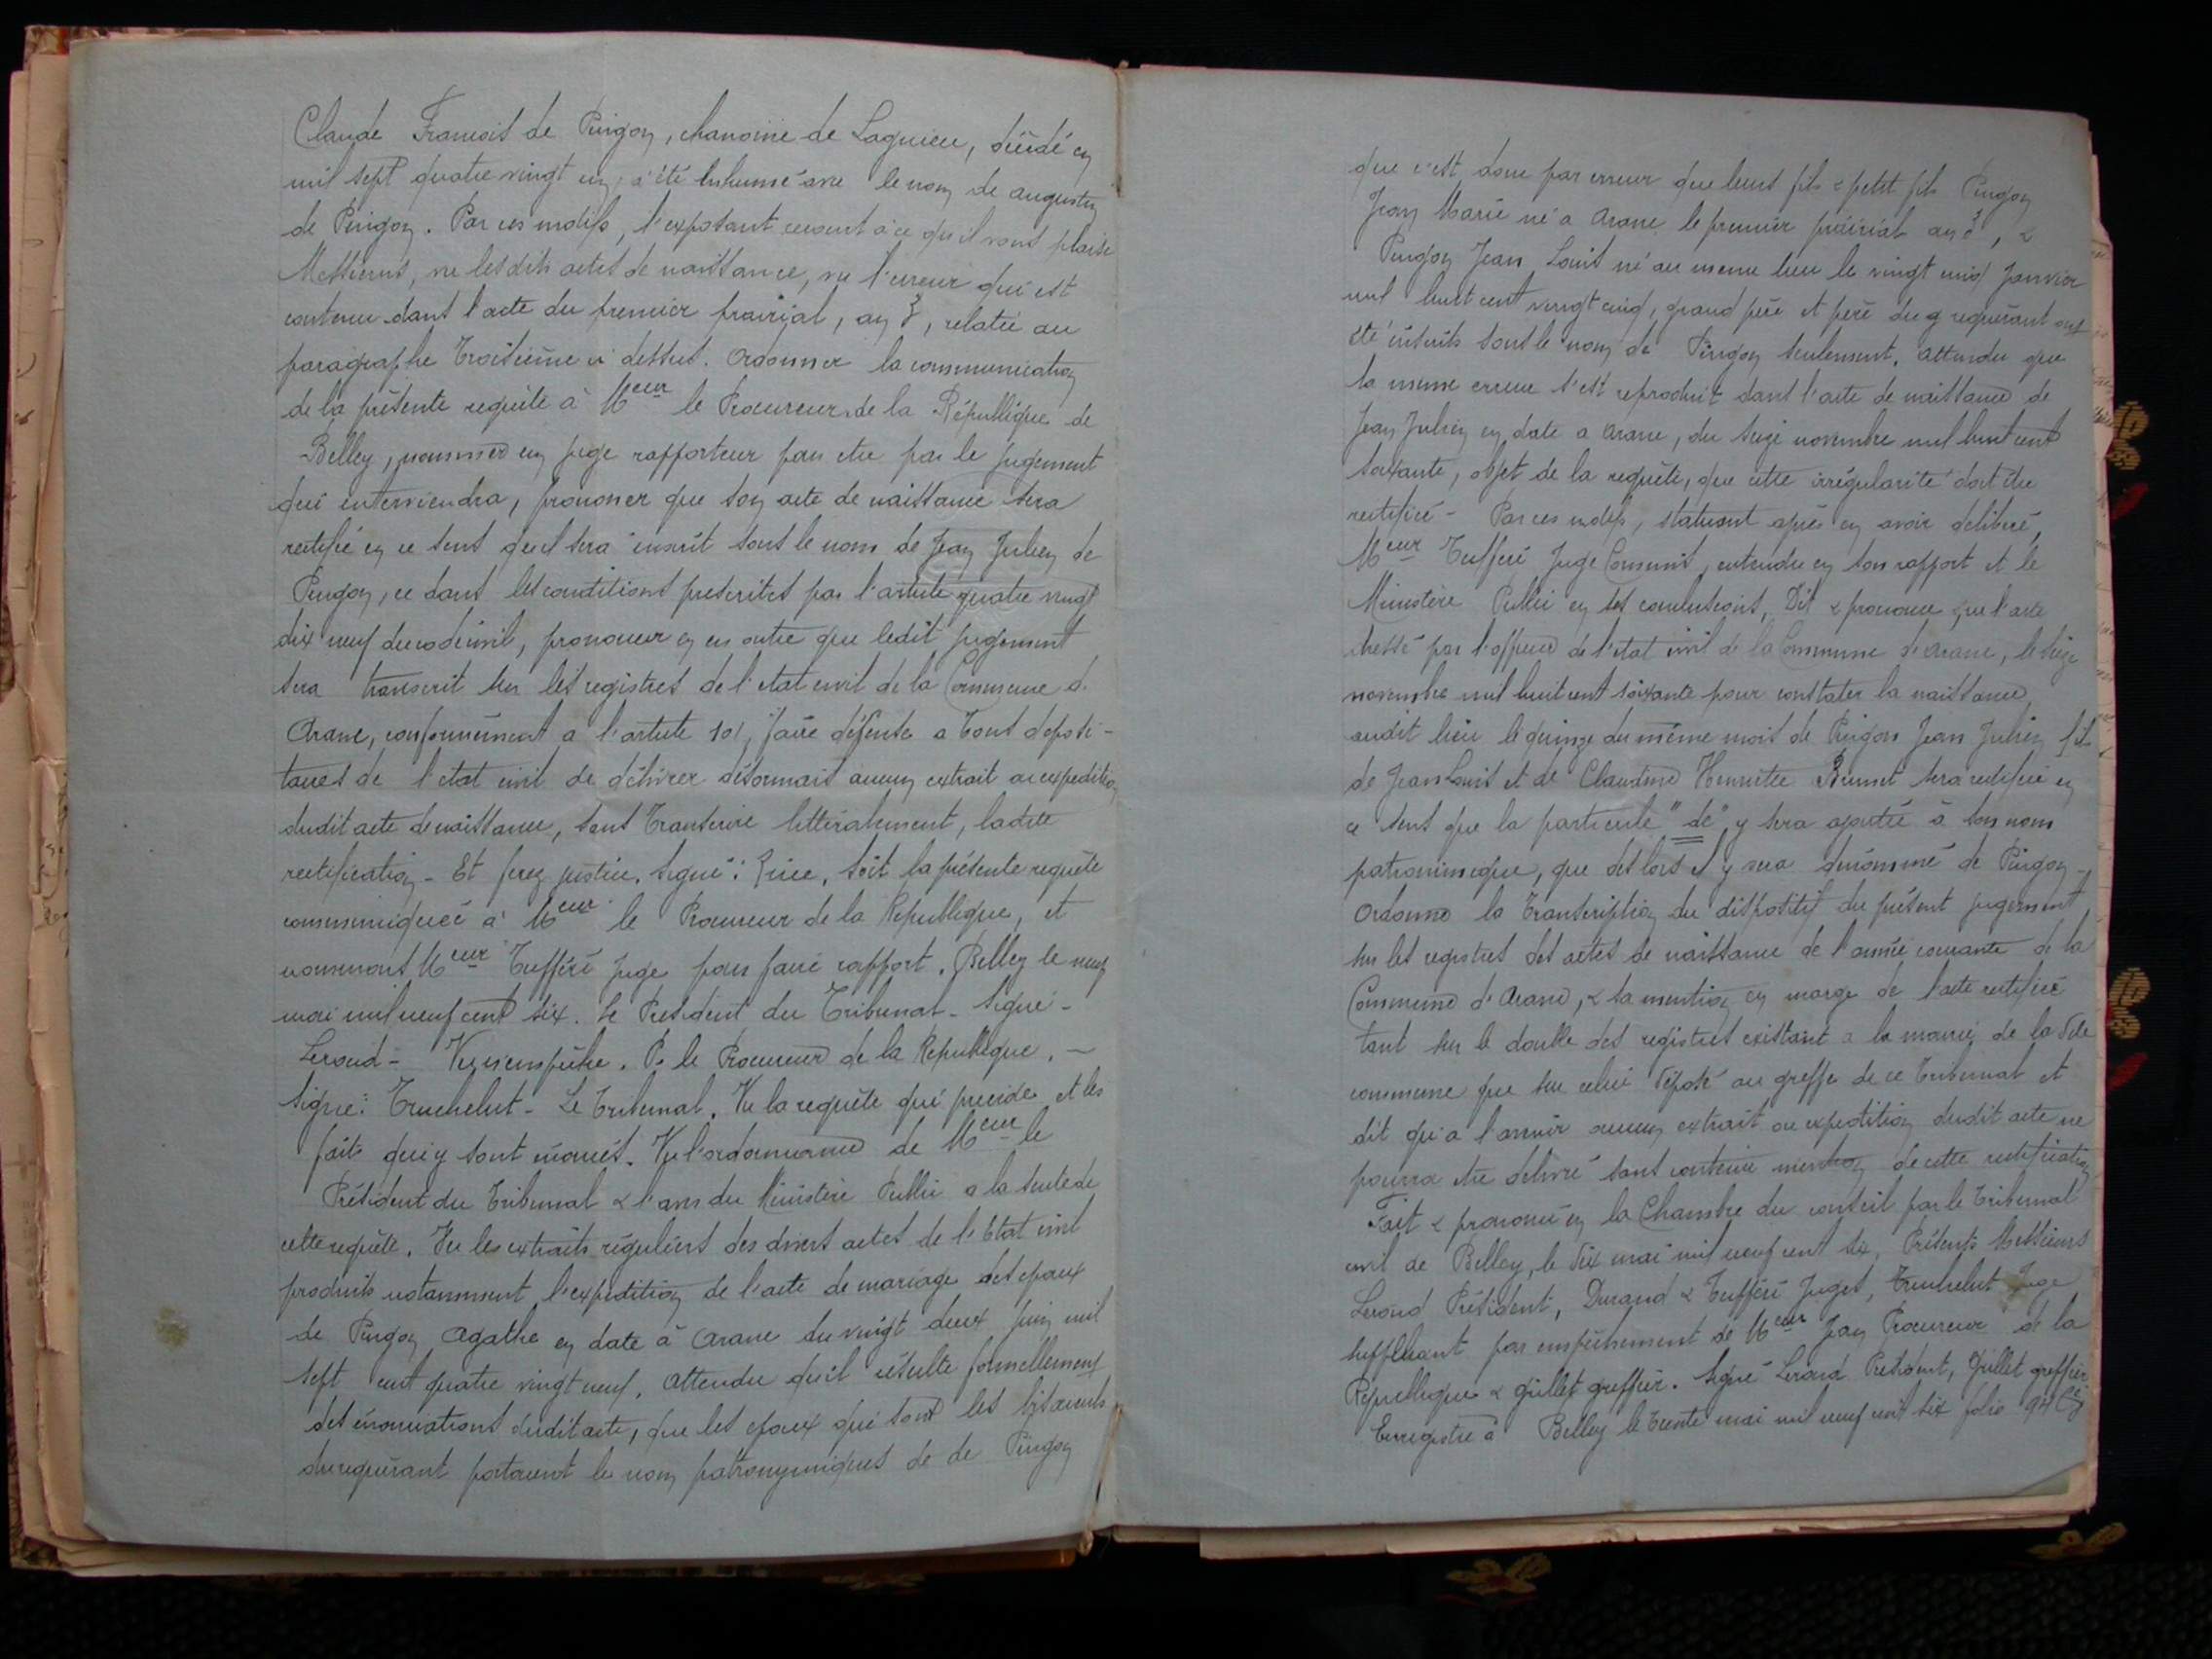 Claude Francois de Pingon, chanoine de Lagnieu, décédé en
mil sept quatre vingt un, a été inhumé avec le nom de augustin
de Pingon. Par ces motifs, l'exposant requiert à ce qu'il vous plaise
Messieurs, vu lesdits actes de naissance, vu l'erreur qui est
contenue dans l'acte du premier prairial, an 3, relatée au
paragraphe troisième ci dessus. Ordonner la communication
de la présente requête à Mˢⁱᵉᵘʳ le Procureur de la République de
Belley, nommer un juge rapporteur pour etre par le jugement
qui interviendra, prononcer que son acte de naissance sera
rectifié en ce sens qu'il sera inscrit sous le nom de Jean Julien de
Pingon, ce dans les conditions prescrites par l'article quatre vingt
dix neuf du code civil, prononcer en en outre que ledit jugement
sera transcrit sur les registres de l'etat civil de la Commune d.
Arane, conformément a l'article 101, faire défense a tous deposi-
taires de l'etat civil de délivrer désormais aucun extrait ou expedition
dudit acte de naissance, sans transcrire littéralement, ladite
rectification - Et ferez justice. Signé: soit la présente requête
communiquée à Mᵉᵘʳ le Procureur de la Republique, et
nommons Mᵉᵘʳ Tufféré Juge pour faire rapport. Belley le neuf
mai mil neuf cent six. Le President du Tribunal - Signé -
Leroud - Vu n'empêche. P. le Procureur de la Republique. -
Signé: Truchelut - Le Tribunal. Vu la requête qui precide et les
faits qui y sont énoncés. Vu l'ordonnance de Mᵉᵘʳ le
Président du Tribunal & l'avis du Ministère Public a la suite de
cette requête. Vu les extraits réguliers des divers actes de l'Etat civil
produits notamment l'expedition de l'acte de mariage des epoux
de Pingon Agathe en date à Arane du vingt deux juin mil
sept cent quatre vingt neuf. Attendu qu'il résulte formellement
des énonciations dudit acte, que les epoux qui sont les bisaieuls
du requérant portaient le nom patronymiques de de Pingon
que c'est donc par erreur que leurs fils & petit fils Pingon
Jean Marie né a Arane le premier prairial an 3, &
Pingon Jean Louis né au meme lieu le vingt cinq Janvier
mil huit cent vingt cinq, grand père et père du requérant ont
été inscrits sous le nom de Pingon seulement. Attendu que
la meme erreur s'est reproduit dans l'acte de naissance de
Jean Julien en date a Arane, du seize novembre mil huit cent
soixante, objet de la requête, que cette irrégularité doit être
rectifiée - Par ces motifs, statuant après en avoir délibéré,
Mᵉᵘʳ Tufféré Juge Commis, entendu en son rapport et le
Ministère Public en ses conclusions, Dit & prononce que l'acte
dressé par l'officier de l'état civil de la Commune d'Arane, le seize
novembre mil huit cent soixante pour constater la naissance
audit lieu le quinze du même mois de Pingon Jean Julien fils
de Jean Louis et de Claudine Henriette Brunet sera rectifié en
ce sens que la particule "de" y sera ajoutée à son nom
patronimique, que dès lors il y sera dénommé de Pingon -
Ordonne la transcription du dispositif du présent jugement
sur les registres des actes de naissance de l'année courante de la
Commune d'Arane, & sa mention en marge de l'acte rectifié
tant sur le double des registres existant a la mairie de la dite
commune que sur celui déposé au greffe de ce Tribunal et
dit qu'a l'avenir aucun extrait ou expedition dudit acte ne
pourra etre délivré sans contenir mention de cette rectification
Fait & prononcé en la Chambre du conseil par le Tribunal
civil de Belley, le dix mai mil neuf cent six, Présents Messieurs
Leroud Président, Durand & Tufféré Juges, Truchelut Juge
suppléant par empêchement de Mᵉᵘʳ Jean Procureur de la
Republique & Gillet greffier. Signé Leroud President, Gillet greffier
Enregistré à Belley le trente mai mil neuf cent six folio 94 Cᵉ